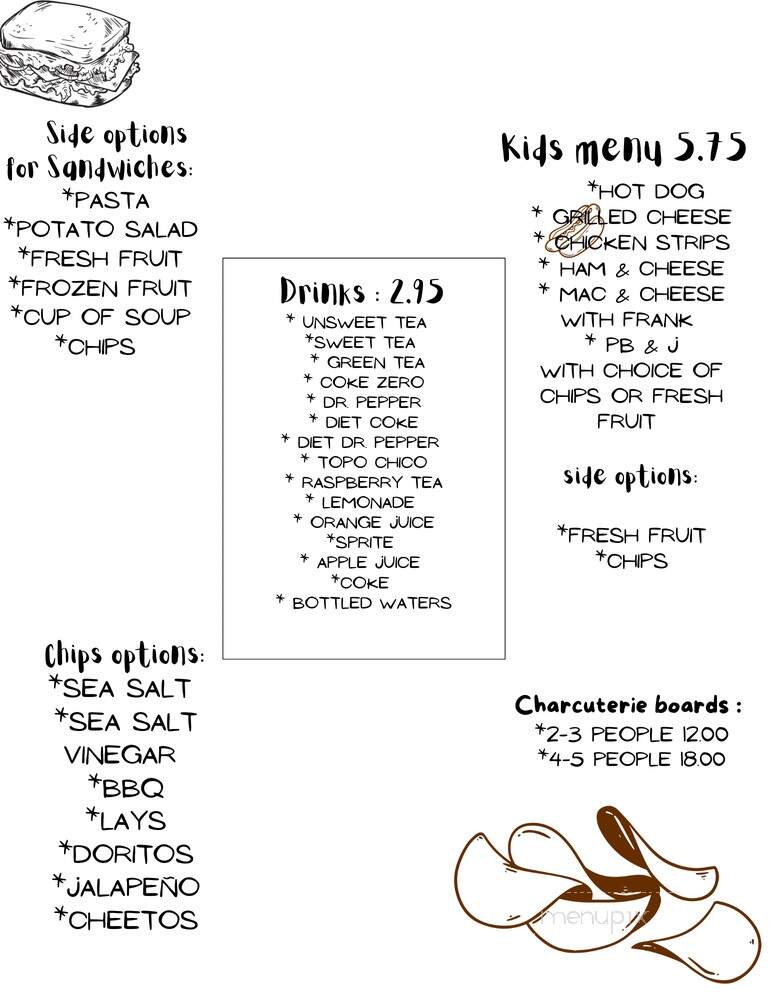 Side options
for Sandwiches:
*PASTA
*POTATO SALAD
*FRESH FRUIT
*FROZEN FRUIT
*CUP OF SOUP
*CHIPS
Kids menu 5.75
*HOT DOG
* GRILLED CHEESE
* CHICKEN STRIPS
* HAM & CHEESE
* MAC & CHEESE
WITH FRANK
* PB & J
WITH CHOICE OF
CHIPS OR FRESH
FRUIT
side options:
*FRESH FRUIT
*CHIPS
Drinks : 2.95
* UNSWEET TEA
*SWEET TEA
* GREEN TEA
* COKE ZERO
* DR. PEPPER
* DIET COKE
* DIET DR. PEPPER
* TOPO CHICO
* RASPBERRY TEA
* LEMONADE
* ORANGE JUICE
*SPRITE
* APPLE JUICE
*COKE
* BOTTLED WATERS
Chips options:
*SEA SALT
*SEA SALT
VINEGAR
*BBQ
*LAYS
*DORITOS
*JALAPEÑO
*CHEETOS
Charcuterie boards :
*2-3 PEOPLE 12.00
*4-5 PEOPLE 18.00
menupix